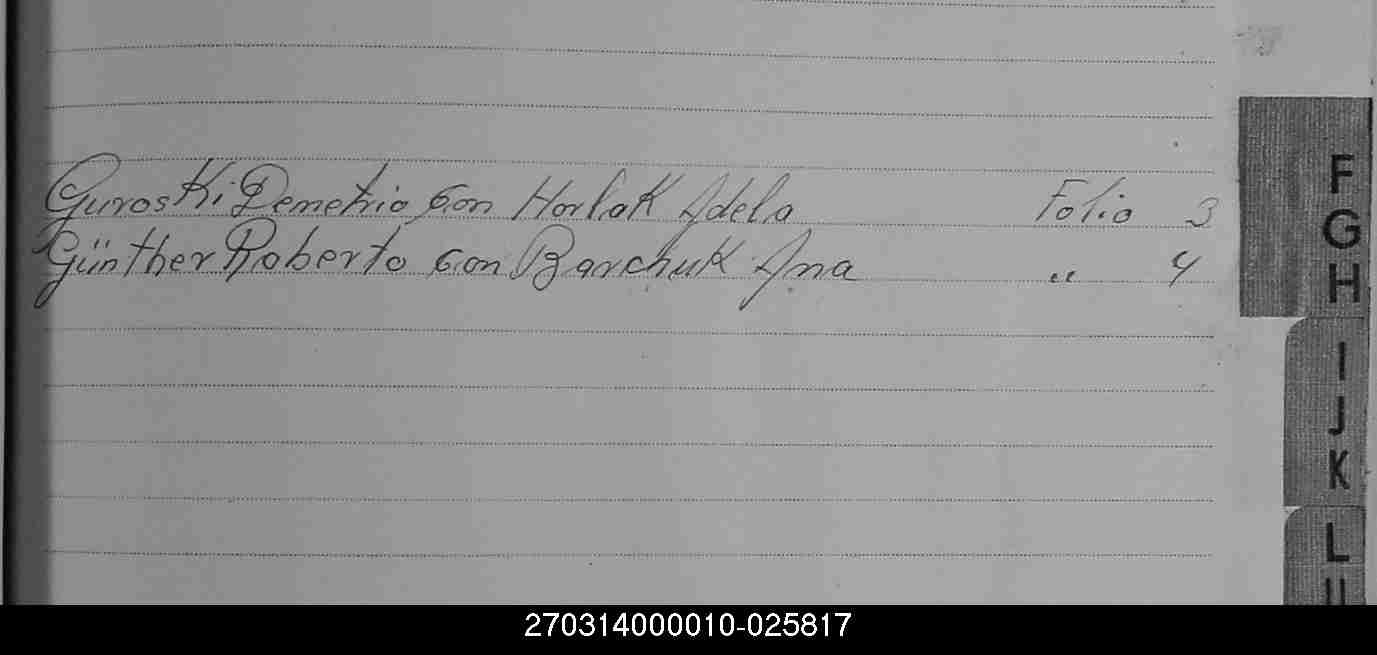 Guroski Demetrio con Horlak Adela Folio 3
Günther Roberto con Barchuk Ana " 4
F
G
H
I
J
K
L
270314000010-025817